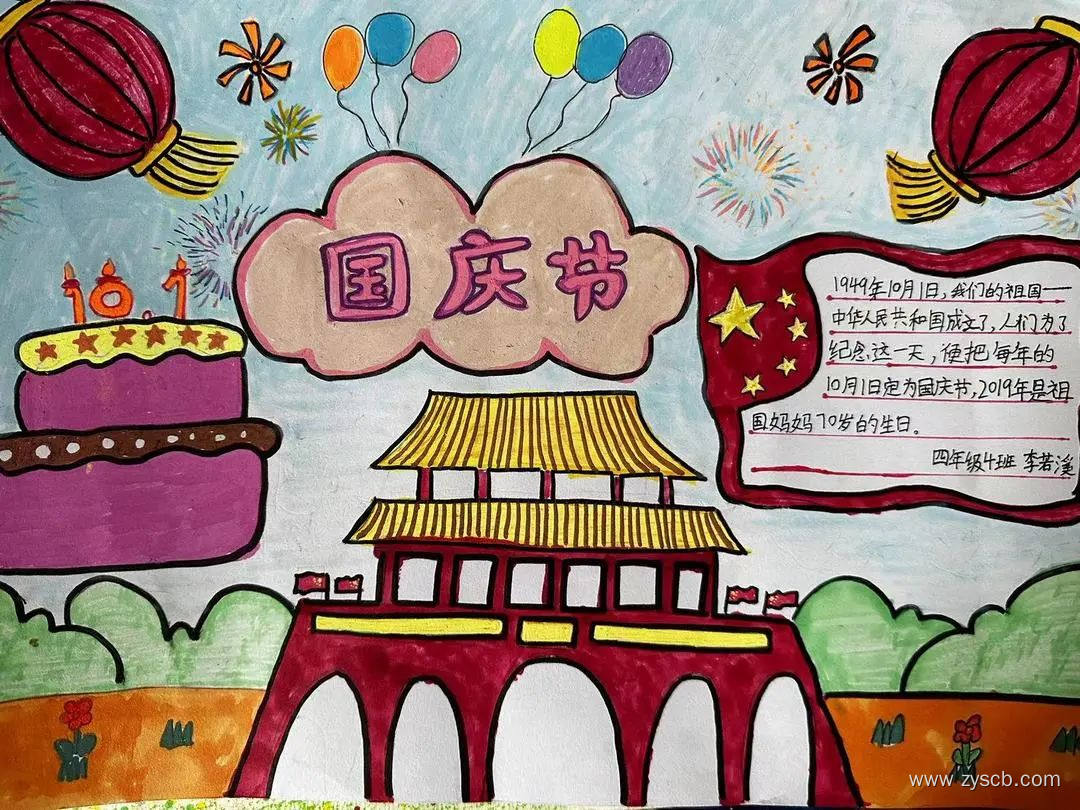 国庆节
10.1
1949年10月1日,我们的祖国一
中华人民共和国成立了,人们为了
纪念这一天,便把每年的
10月1日定为国庆节,2019年是祖
国妈妈70岁的生日。
四年级4班 李若溪
www.zyscb.com